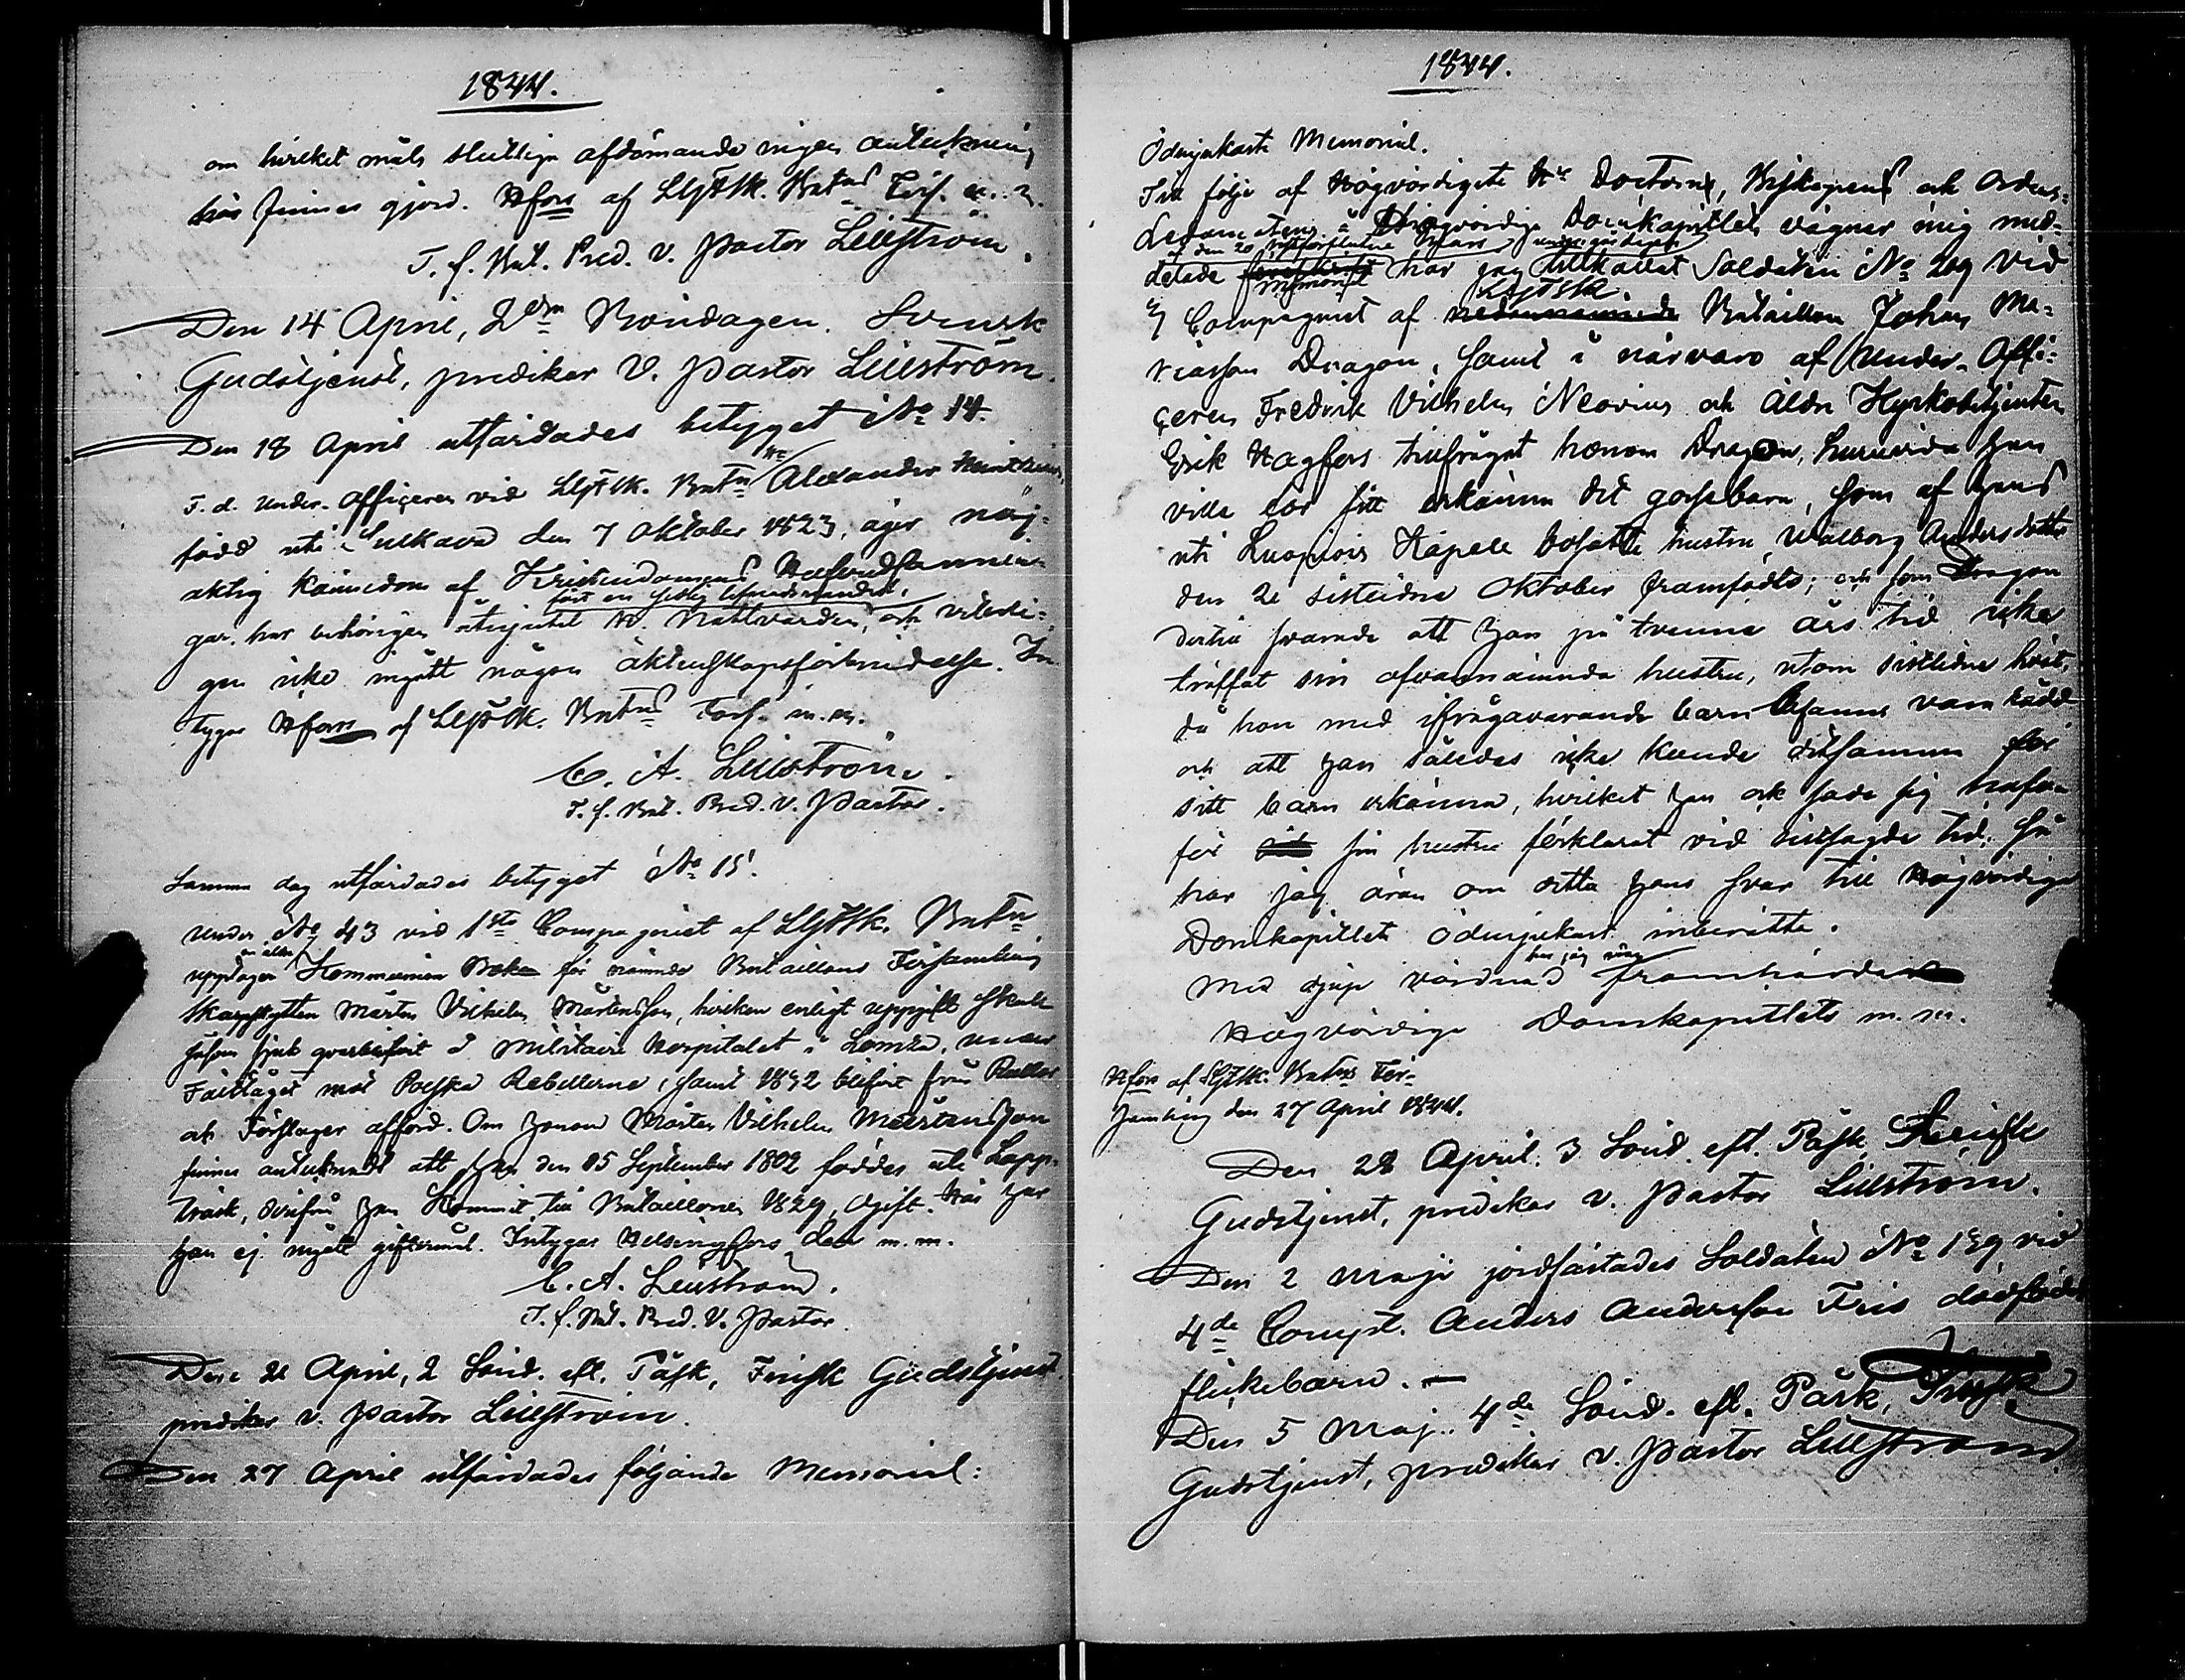 1844.
om hvilket måls slutliga afdömande ingen anteckning
här finnes gjord. Hfors af LgFSk. Batns Förs. m. m.
T. f. Bat. Pred. v. Pastor Lillström.
Den 14 April, 2dra Böndagen. Svensk
Gudstjenst, prediker V. Pastor Lillström.
Den 18 April utfärdades betyget No 14.
F. d. Under-Officeren vid LgFSk. Batn Hr Alexander
född uti Sulkava den 7 Oktober 1823, äger nöj-
aktig kännedom af Kristendomens Hufvudsannin-
gar, har behörigen åtnjutit H. Nattvarden, fört en sedlig lefnadsvandel, och veterli-
gen icke ingått någon äktenskapsförbindelse. In-
tygar Hfors af LgFSk. Batns Förs. m. m.
C. A. Lillström.
T. f. Bat. Pred. v. Pastor.
Samma dag utfärdades betyget No 15.
Under No 43 vid 1sta Compagniet af LgFSk. Batn
upptager en äldre Kommunion Bok för nämnde Bataillons Församling
Skarpskytten Mårten Vilhelm Mårtensson, hvilken enligt uppgift skall
såsom sjuk qvarblifvit å Militaire Hospitalet i Lomza, under
Fälttåget mot Polska Rebellerne, samt 1832 blifvit från Rullor
och Förslager afförd. Om honom Mårten Vilhelm Mårtensson
finnes antecknadt att han den 15 September 1802 föddes uti Lapp-
träsk, derifrån han kommit till Bataillonen 1829, ogift. Här har
han ej ingått giftermål. Intygas Helsingfors den m. m.
C. A. Lillström.
T. f. Bat. Pred. V. Pastor.
Den 21 April, 2 Sönd. eft. Påsk, Finsk Gudstjenst
prediker v. Pastor Lillström.
Den 27 April utfärdades följande Memorial:
1844.
Ödmjukaste Memorial.
Till följe af Högvördigste Hr Doctorns, Biskopens och Ordens-
Ledamotens å Högvördiga Domkapitlets vägnar mig med-
af den 20 sistförflutne Mars undergårdagen
delade memorial har jag tillkallat Soldaten No 209 vid
LgFSk
3 Compagniet af Bataillon Johan Ma-
Dragon, samt i närvaro af Under-Offi-
ceren Fredrik Vilhelm Neovius och Äldre Kyrkobetjenten
Erik Hagfors tillfrågat honom Dragon, huruvida han
ville för sitt erkänna det gossebarn, som af hans
uti Luopiois Kapell bosatte hustru Walborg Andersdotter
den 21 sistledne Oktober framföddts; och som Dragon
dertill svarade att han på tvenne års tid icke
träffat sin ofvannämnda hustru, utom sistledne höst,
då hon med ifrågavarande barn befanns vara rådd
och att han således icke kunde detsamma för
sitt barn erkänna, hvilket han ock sade sig hafva
för sin hustru förklarat vid sistsagde tid: så
har jag äran om detta hans svar till Högvördiga
Domkapitlet ödmjukast inberätta.
Med djup vördnad har jag äran framhärda
Högvördiga Domkapitlets m. m.
Hfors af LgFSk. Batns För-
samling den 27 April 1844.
Den 28 April. 3 Sönd. eft. Påsk, Svensk
Gudstjenst, prediker v. Pastor Lillström.
Den 2 Maji jordfästades Soldaten No 139 vid
4de Compt. Anders Andersson Fris dödfödde
flickebarn.
Den 5 Maj. 4de Sönd. eft. Påsk, Finsk
Gudstjenst, prediker v. Pastor Lillström